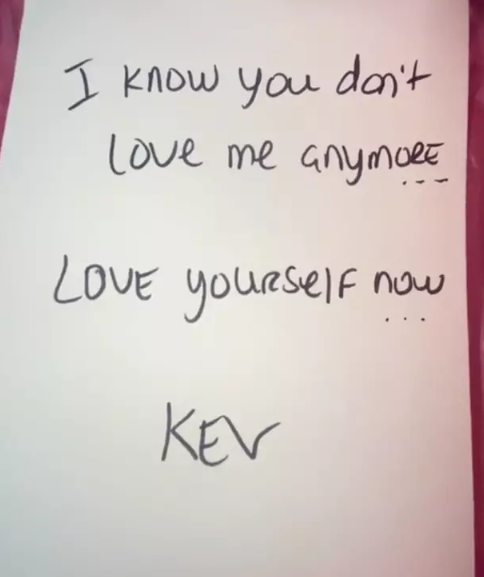 I know you don't
love me anymore
...
LOVE yourself now
...
KEV